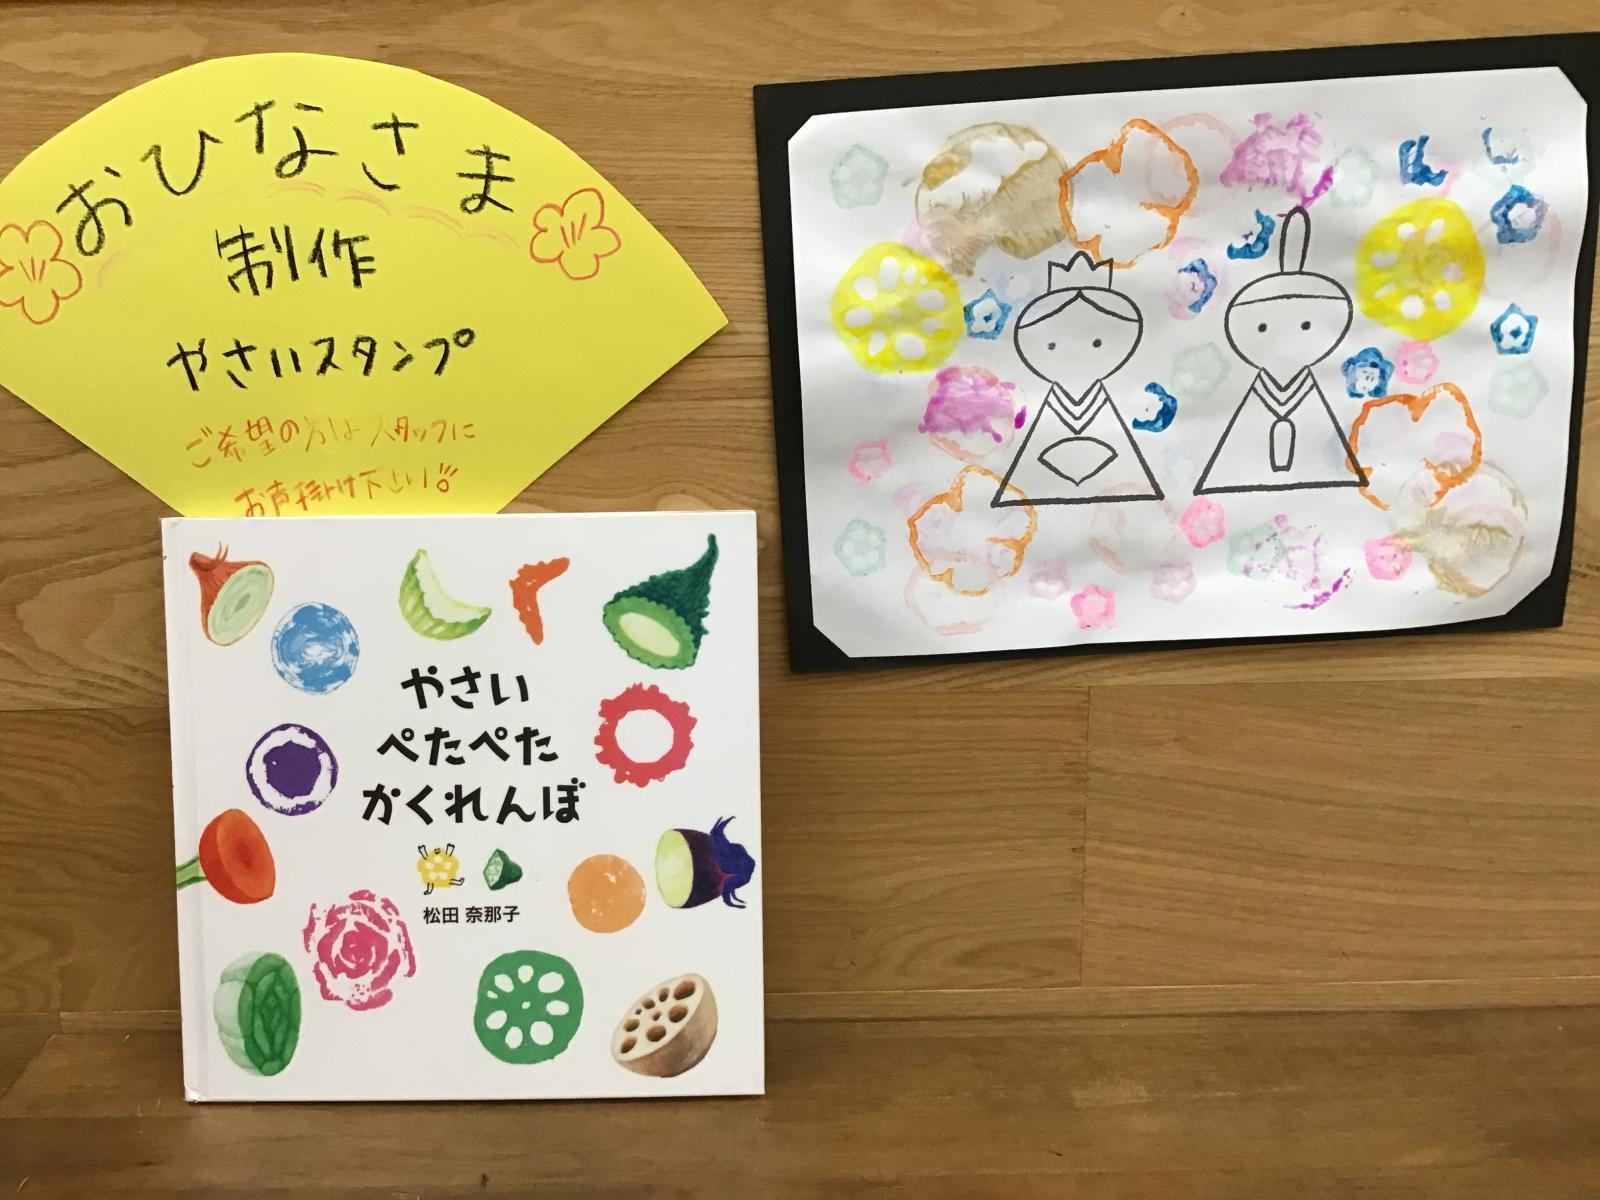 おひなさま
制作
やさいスタンプ
ご希望の方はスタッフに
お声掛け下さい
やさい
ぺたぺた
かくれんぼ
松田 奈那子